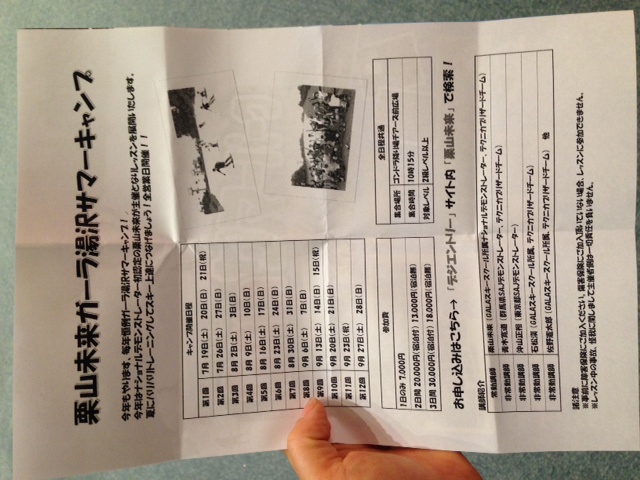 栗山未来ガーラ湯沢サマーキャンプ
今年もやります。毎年恒例ガーラ湯沢サマーキャンプ！
今年はナショナルデモンストレーター初認定の栗山未来が主催となりレッスンを展開いたします。
夏にバリバリトレーニングしてスキー上達につなげましょう！全営業日開催！！
キャンプ開催日程
第1回 7月19日(土) 20日(日) 21日(祝)
第2回 7月26日(土) 27日(日)
第3回 8月2日(土) 3日(日)
第4回 8月9日(土) 10日(日)
第5回 8月16日(土) 17日(日)
第6回 8月23日(土) 24日(日)
第7回 8月30日(土) 31日(日)
第8回 9月6日(土) 7日(日)
第9回 9月13日(土) 14日(日) 15日(祝)
第10回 9月20日(土) 21日(日)
第11回 9月23日(祝)
第12回 9月27日(土) 28日(日)
全日程共通
集合場所 ゴンドラ降り場チアーズ前広場
集合時間 10時15分
対象レベル 2級レベル以上
参加費
1日のみ 7,000円
2日間 20,000円(宿泊付) 13,000円(宿泊無)
3日間 30,000円(宿泊付) 18,000円(宿泊無)
お申し込みはこちら→ 「デジエントリー」サイト内「栗山未来」で検索！
講師紹介
常勤講師 栗山未来 (GALAスキースクール所属ナショナルデモンストレーター、テクニカプリザードチーム)
非常勤講師 青木亮道 (群馬県SAJデモンストレーター、テクニカプリザードチーム)
非常勤講師 沖山正裕 (東京都SAJデモンストレーター)
非常勤講師 石松 (GALAスキースクール所属、テクニカプリザードチーム)
非常勤講師 佐野竜太郎 (GALAスキースクール所属、テクニカプリザードチーム) 他
諸注意
※事前に傷害保険にご加入ください。傷害保険にご加入頂いていない場合、レッスンに参加できません。
※レッスン中の事故、怪我に関しまして主催者側は一切責任を負いません。